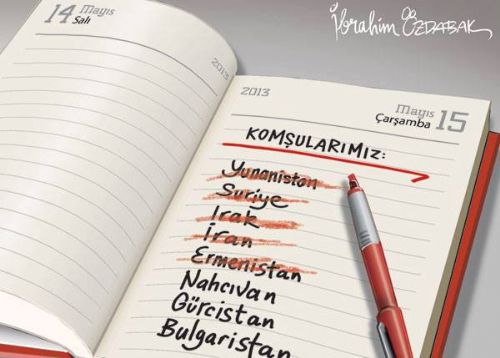 İbrahim ÖZDABAK
14 Mayıs
Salı
2013
Mayıs 15
Çarşamba
KOMŞULARIMIZ:
Yunanistan
Suriye
Irak
İran
Ermenistan
Nahcıvan
Gürcistan
Bulgaristan